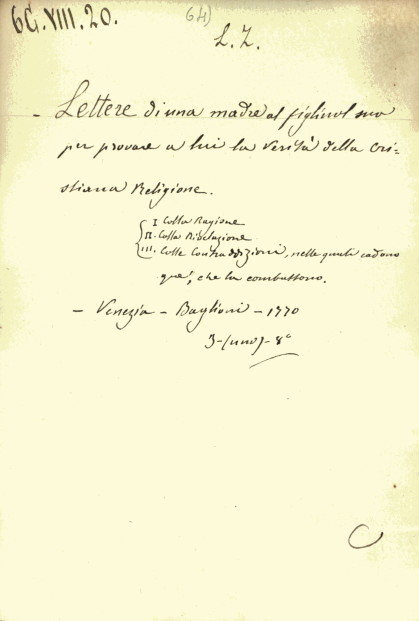 6G.VIII.20.
64)
L. Z.
- Lettere di una madre al figliuol suo
per provare a lui la verità della Cri-
stiana Religione.
I Colla Ragione
II. Colla Rivelazione
III. Colle Contraddizioni, nelle quali cadono
que', che la combattono.
- Venezia - Baglioni - 1770
3-(uno)-8°
C